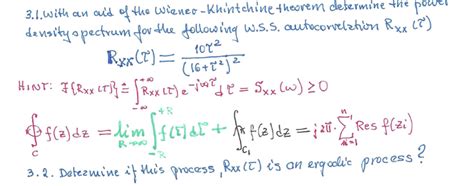 3.1. With an aid of the Wiener-Khintchine theorem determine the power
density spectrum for the following W.S.S. autocorrelation Rxx(τ)
Rxx(τ) = 10τ² / (16+τ²)²
HINT: ℱ{Rxx(τ)} ≜ ∫_{-∞}^{+∞} Rxx(τ) e^{-jωτ} dτ = Sxx(ω) ≥ 0
∮_C f(z)dz = lim_{R→∞} ∫_{-R}^{+R} f(τ)dτ + ∫_{C₁} f(z)dz = j2π · ∑_{i=1}^{n} Res f(zi)
3.2. Determine if this process, Rxx(τ) is an ergodic process?